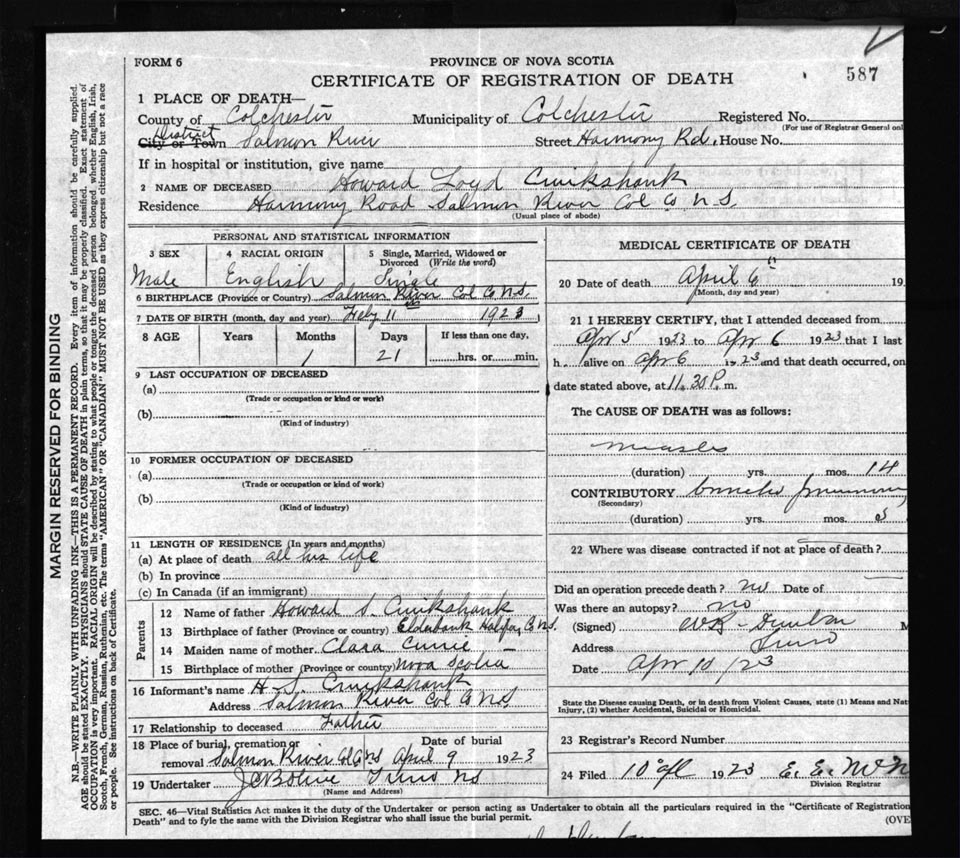 FORM 6
PROVINCE OF NOVA SCOTIA
CERTIFICATE OF REGISTRATION OF DEATH
587
1 PLACE OF DEATH—
County of Colchester Municipality of Colchester Registered No.
(For use of Registrar General onl
District
City or Town Salmon River Street Harmony Rd, House No.
If in hospital or institution, give name
2 NAME OF DECEASED Howard Loyd Cruikshank
Residence Harmony Road Salmon River Col Co N.S.
(Usual place of abode)
PERSONAL AND STATISTICAL INFORMATION
3 SEX
Male
4 RACIAL ORIGIN
English
5 Single, Married, Widowed or Divorced (Write the word)
Single
6 BIRTHPLACE (Province or Country) Salmon River Col Co N.S.
7 DATE OF BIRTH (month, day and year) Feby 11 1923
8 AGE Years Months Days If less than one day,
1 21 hrs. or min.
9 LAST OCCUPATION OF DECEASED
(a)
(Trade or occupation or kind or work)
(b)
(Kind of industry)
10 FORMER OCCUPATION OF DECEASED
(a)
(Trade or occupation or kind of work)
(b)
(Kind of industry)
11 LENGTH OF RESIDENCE (In years and months)
(a) At place of death all his life
(b) In province
(c) In Canada (if an immigrant)
Parents
12 Name of father Howard S. Cruikshank
13 Birthplace of father (Province or country) Elderbank Halifax Co N.S.
14 Maiden name of mother Clara Currie
15 Birthplace of mother (Province or country) Nova Scotia
16 Informant's name H. S. Cruikshank
Address Salmon River Col Co N.S.
17 Relationship to deceased Father
18 Place of burial, cremation or removal Salmon River Col Co NS Date of burial April 9 1923
19 Undertaker Truro NS
(Name and Address)
MEDICAL CERTIFICATE OF DEATH
20 Date of death April 6 19
(Month, day and year)
21 I HEREBY CERTIFY, that I attended deceased from
Apr 5 1923 to Apr 6 1923 that I last
h alive on Apr 6 1923 and that death occurred, on
date stated above, at 11.30 P. m.
The CAUSE OF DEATH was as follows:
Measles
(duration) yrs. mos. 14
CONTRIBUTORY
(Secondary)
(duration) yrs. mos.
22 Where was disease contracted if not at place of death?
Did an operation precede death? no Date of
Was there an autopsy? no
(Signed) M
Address Truro
Date Apr 10/23
State the Disease causing Death, or in death from Violent Causes, state (1) Means and Nat
Injury, (2) whether Accidental, Suicidal or Homicidal.
23 Registrar's Record Number
24 Filed 1923
Division Registrar
SEC. 46—Vital Statistics Act makes it the duty of the Undertaker or person acting as Undertaker to obtain all the particulars required in the "Certificate of Registration
Death" and to fyle the same with the Division Registrar who shall issue the burial permit.
(OVE
MARGIN RESERVED FOR BINDING
N.B.—WRITE PLAINLY WITH UNFADING INK—THIS IS A PERMANENT RECORD. Every item of information should be carefully supplied.
AGE should be stated EXACTLY. PHYSICIANS should STATE CAUSE OF DEATH in plain terms, so that it may be properly classified. Exact statement of
OCCUPATION is very important. RACIAL ORIGIN will be described by stating to what people or tongue the deceased person belonged whether English, Irish,
Scotch, French, German, Russian, Ruthenian, etc. The terms "AMERICAN" OR "CANADIAN" MUST NOT BE USED as they express citizenship but not a race
or people. See instructions on back of Certificate.